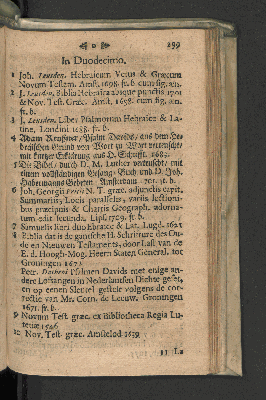 ❧ o ☙ 299
In Duodecimo.
1 Joh. Leusden. Hebraicum Vetus & Græcum
Novum Testam. Amst. 1698. fr. b. cum fig. æn.
2 J. Leusden. Biblia Hebraica absque punctis 1701
& Nov. Test. Græc. Amst. 1698. cum fig. æn.
fr. b.
3 J. Leusden. Liber Psalmorum Hebraice & La-
tine, Londini 1688. fr. b.
4 Adam Reusner, Psalm Davids, aus dem He-
bræischen Grund von Wort zu Wort verteutscht
mit kurtzer Erklärung aus H. Schrifft. 1683.
5 Die Bibel, durch D. M. Luther verteutscht, mit
einem vollständigen Gesang-Buch und D. Joh.
Habermanns Gebeten. Amsterdam 1701. fr. b.
6 Joh. Georgii N. T. græc. adjunctis capit.
Summariis, Locis parallelis, variis lectioni-
bus præcipuis & Chartis Geograph. adorna-
tum edit. secunda. Lips. 1709. fr. b.
7 Samuelis libri duo Ebraice & Lat. Lugd. 1621
8 Biblia dat is de gantsche H. Schrifture des Ou-
de en Nieuwen Testaments, door Last van de
E. d. Hoogh-Mog. Heeren Staten General, tot
Groningen 1671.
Petr. Datheni Psalmen Davids met enige an-
dere Lofsangen in Nederlandsen Dichte geset,
en op eenen Sleutel gestelt volgens de cor-
rectie van Mr. Corn. de Leeuw. Groningen
1671. fr. b.
9 Novum Test. græc. ex bibliotheca Regia Lu-
tetiæ 1546.
10 Nov. Test. græc. Amstelod 1639
11 La